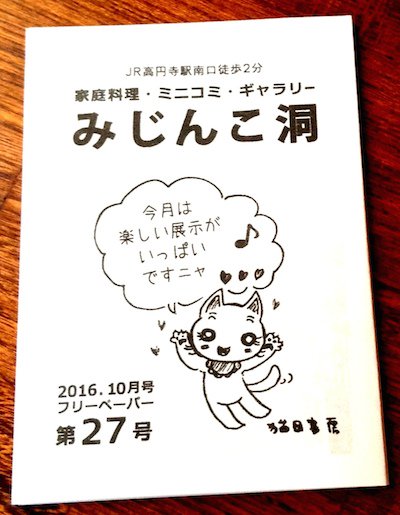 JR高円寺駅南口徒歩2分
家庭料理・ミニコミ・ギャラリー
みじんこ洞
今月は
楽しい展示が
いっぱい
ですニャ
2016.10月号
フリーペーパー
第27号
猫田書房